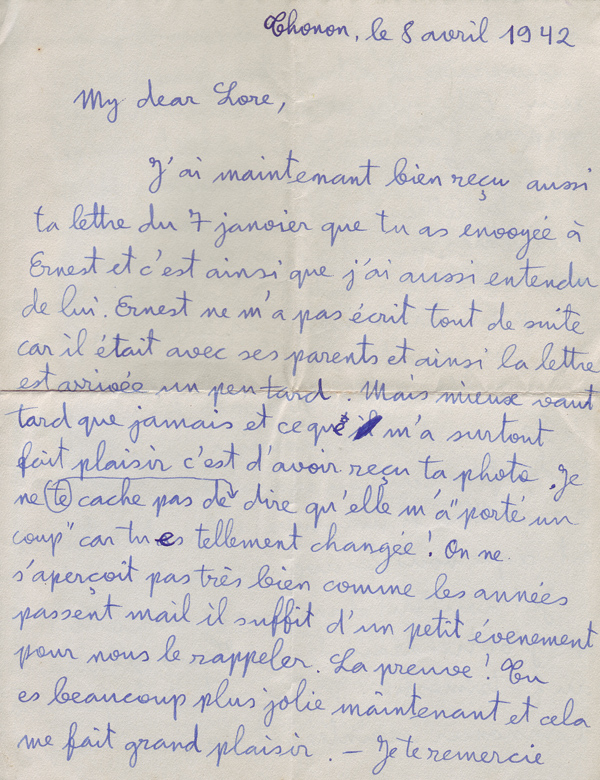 Thonon, le 8 avril 1942
My dear Lore,
J'ai maintenant bien reçu aussi
ta lettre du 7 janvier que tu as envoyée à
Ernest et c'est ainsi que j'ai aussi entendu
de lui. Ernest ne m'a pas écrit tout de suite
car il était avec ses parents et ainsi la lettre
est arrivée un peu tard. Mais mieux vaut
tard que jamais et ce qui m'a surtout
fait plaisir c'est d'avoir reçu ta photo. Je
ne te cache pas de dire qu'elle m'a "porté un
coup" car tu es tellement changée! On ne
s'aperçoit pas très bien comme les années
passent mail il suffit d'un petit évenement
pour nous le rappeler. La preuve! Tu
es beaucoup plus jolie maintenant et cela
me fait grand plaisir. — Je te remercie